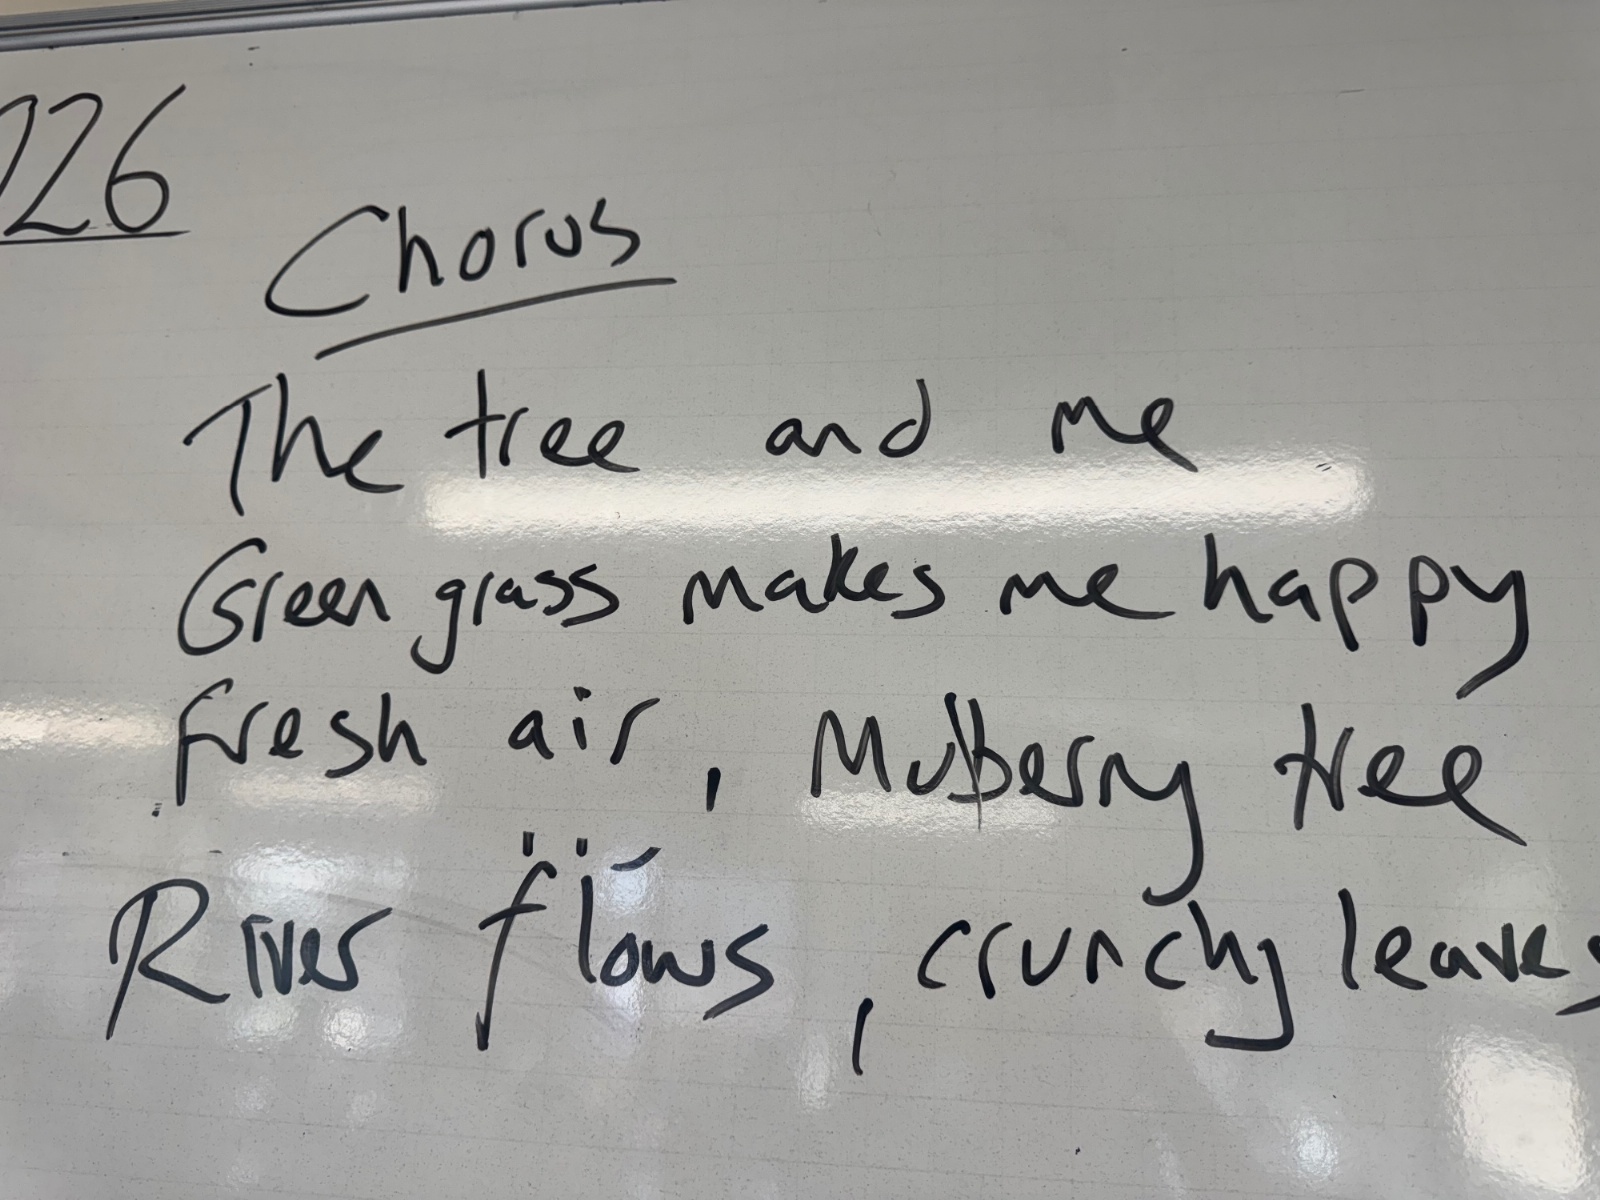 026
Chorus
The tree and me
Green grass makes me happy
Fresh air, Mulberry tree
River flows, crunchy leaves